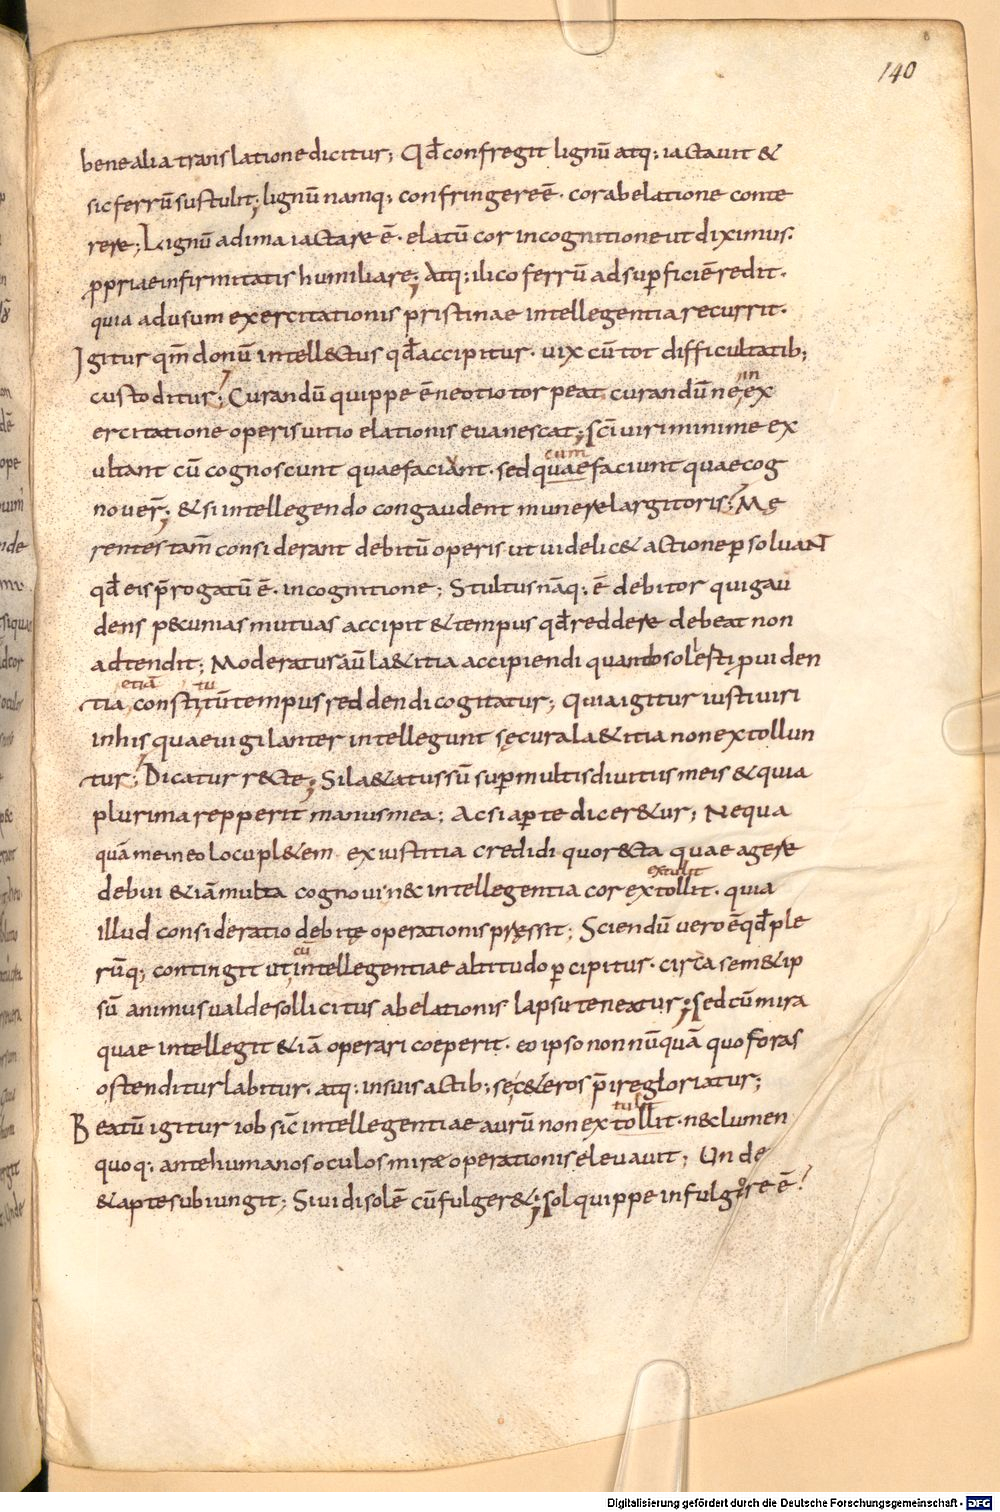 140
bene alia translatione dicitur; Qđ confregit lignū atq; iactauit &
sic ferrū sustulit; lignū namq; confringere ē· cor ab elatione conte
rere; Lignū ad ima iactare ē· elatū cor in cognitione ut diximus·
ꝓpriae infirmitatis humiliare; Atq; ilico ferrū ad suꝑficiē redit·
quia ad usum exercitationis pristinae intellegentia recurrit·
Igitur qm̄ donū intellectus qđ accipitur· uix cū tot difficultatib;
custoditur; Curandū quippe ē ne otio torpeat curandū ne in ex
ercitatione operis uitio elationis euanescat; sc̄i uiri minime ex
ultant cū cognoscunt quae faciant· sed cum quae faciunt quae cog
nouer̄; & si intellegendo congaudent munere largitoris; Me
rentes tam̄ considerant debitū operis· ut uidelic& actione ꝑsoluant
qđ eis p̄rogatū ē· in cognitione; Stultus nāq; ē debitor qui gau
dens pecunias mutuas accipit & tempus qđ reddere debeat non
adtendit; Moderatus aū la&itia accipiendi quando solesti ꝓuiden
tia etiā constitutū tempus reddendi cogitatur; Quia igitur iusti uiri
in his quae uigilanter intellegunt sęcura la&itia non extollun
tur; Dicatur recte; Si la&atus sū suꝑ multis diuitiis meis & quia
plurima repperit manus mea; Ac si aꝑte dicer&ur; Nequa
quā me in eo locupl&em ex iustitia credidi quo recta quae agere
debui & iā multa cognoui nec intellegentia cor extollit· quia
extulit
illud consideratio debitę operationis pręssit; Sciendū uero ē qđ ple
rūq; contingit ut cū intellegentiae altitudo ꝑcipitur· circa sem&ip
sū animus ualde sollicitus ab elationis lapsu teneatur; sed cū mira
quae intellegit & iā operari coeperit· eo ipso non nūquā quo foras
ostenditur labitur· atq; in suis actib; sę c&eros p̄ire gloriatur;
Beatū igitur iob sic̄ intellegentiae aurū non extollit· nec lumen
tulit
quoq; ante humanos oculos mirae operationis eleuauit; Unde
& apte subiungit; Si uidi solē cū fulger&; sol quippe in fulgore ē
Digitalisierung gefördert durch die Deutsche Forschungsgemeinschaft - DFG